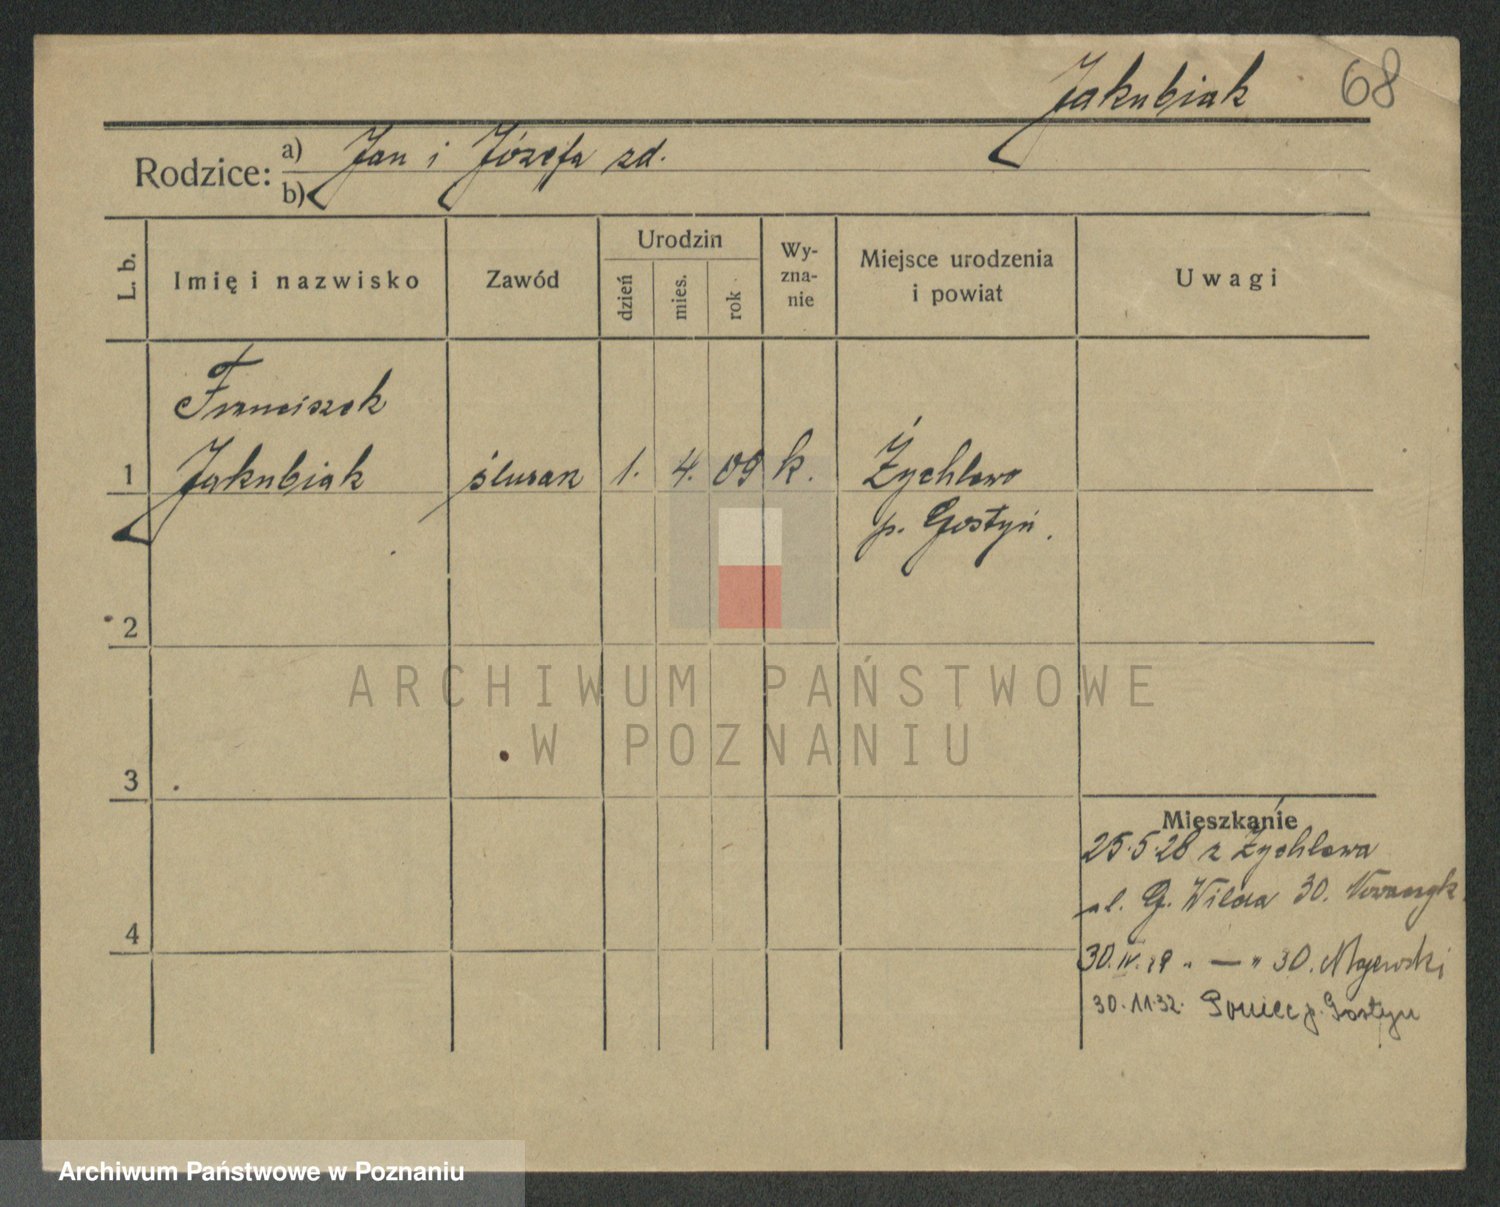 Jakubiak 68
Rodzice: a) Jan i Józefa zd.
b)
L. b. Imię i nazwisko Zawód Urodzin dzień mies. rok Wy-zna-nie Miejsce urodzenia i powiat Uwagi
Franciszek
1 Jakubiak ślusarz 1. 4. 09 k. Żychlewo
p. Gostyń.
2
ARCHIWUM PAŃSTWOWE
W POZNANIU
3
Mieszkanie
25.5.28 z Żychlewa
ul. G. Wilda 30. Nowaczyk
4
30.IV.29 " — " 30. Majewski
30.11.32. Poniec p. Gostyn
Archiwum Państwowe w Poznaniu